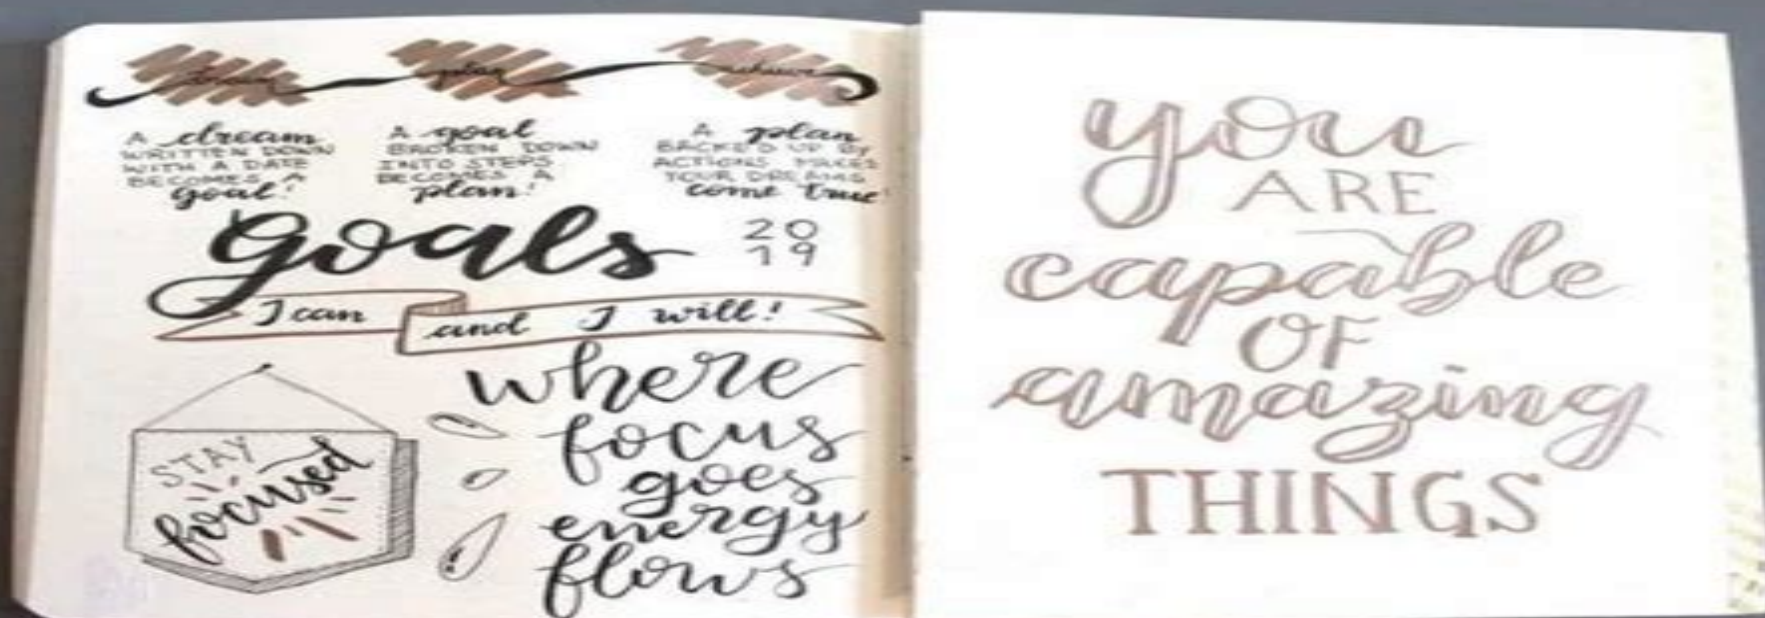 dream plan achieve
A dream
WRITTEN DOWN
WITH A DATE
BECOMES A
goal!
A goal
BROKEN DOWN
INTO STEPS
BECOMES A
plan!
A plan
BACKED UP BY
ACTIONS MAKES
YOUR DREAMS
come true
Goals
20
19
I can and I will!
STAY
focused
where
focus
goes
energy
flows
you
ARE
capable
OF
amazing
THINGS